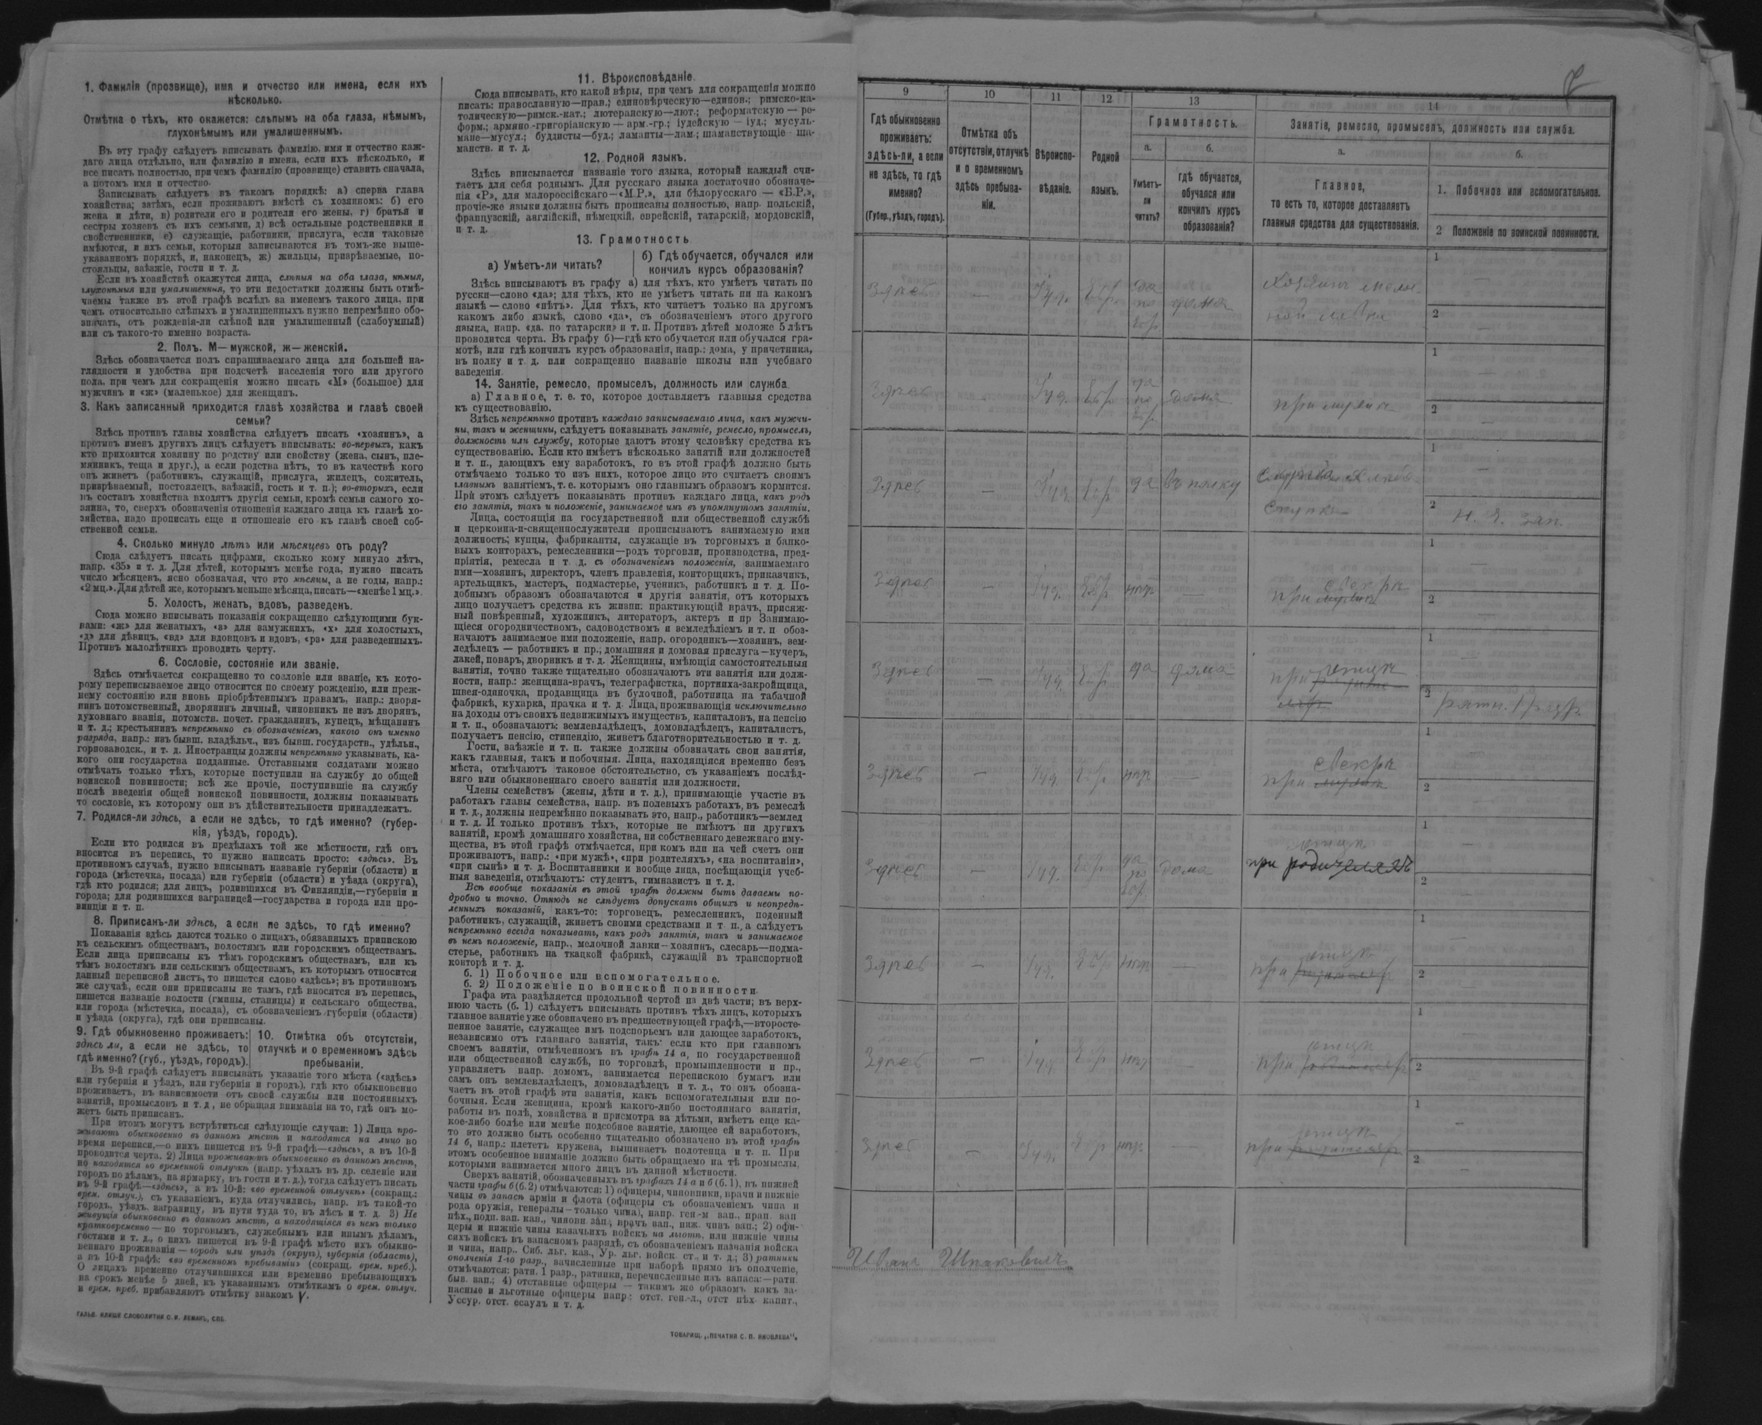 1. Фамилія (прозвище), имя и отчество или имена, если ихъ
нѣсколько.
Отмѣтка о тѣхъ, кто окажется: слѣпымъ на оба глаза, нѣмымъ,
глухонѣмымъ или умалишеннымъ.
Въ эту графу слѣдуетъ вписывать фамилію, имя и отчество каж-
даго лица отдѣльно, или фамилію и имена, если ихъ нѣсколько, и
все писать полностью, при чемъ фамилію (прозвище) ставить сначала,
а потомъ имя и отчество.
Записывать слѣдуетъ въ такомъ порядкѣ: а) сперва глава
хозяйства; затѣмъ, если проживаютъ вмѣстѣ съ хозяиномъ: б) его
жена и дѣти, в) родители его и родители его жены, г) братья и
сестры хозяевъ съ ихъ семьями, д) всѣ остальные родственники и
свойственники, е) служащіе, работники, прислуга, если таковые
имѣются, и ихъ семьи, которыя записываются въ томъ-же выше-
указанномъ порядкѣ, и, наконецъ, ж) жильцы, призрѣваемые, по-
стояльцы, заѣзжіе, гости и т. д.
Если въ хозяйствѣ окажутся лица, слѣпыя на оба глаза, нѣмыя,
глухонѣмыя или умалишенныя, то эти недостатки должны быть отмѣ-
чаемы также въ этой графѣ вслѣдъ за именемъ такого лица, при
чемъ относительно слѣпыхъ и умалишенныхъ нужно непремѣнно обо-
значать, отъ рожденія-ли слѣпой или умалишенный (слабоумный)
или съ такого-то именно возраста.
2. Полъ. М—мужской, ж—женскій.
Здѣсь обозначается полъ спрашиваемаго лица для большей на-
глядности и удобства при подсчетѣ населенія того или другого
пола, при чемъ для сокращенія можно писать «М» (большое) для
мужчинъ и «ж» (маленькое) для женщинъ.
3. Какъ записанный приходится главѣ хозяйства и главѣ своей
семьи?
Здѣсь противъ главы хозяйства слѣдуетъ писать «хозяинъ», а
противъ именъ другихъ лицъ слѣдуетъ вписывать: во-первыхъ, какъ
кто приходится хозяину по родству или свойству (жена, сынъ, пле-
мянникъ, теща и друг.), а если родства нѣтъ, то въ качествѣ кого
онъ живетъ (работникъ, служащій, прислуга, жилецъ, сожитель,
призрѣваемый, постоялецъ, заѣзжій, гость и т. п.); во-вторыхъ, если
въ составъ хозяйства входятъ другія семьи, кромѣ семьи самого хо-
зяина, то, сверхъ обозначенія отношенія каждаго лица къ главѣ хо-
зяйства, надо прописать еще и отношеніе его къ главѣ своей соб-
ственной семьи.
4. Сколько минуло лѣтъ или мѣсяцевъ отъ роду?
Сюда слѣдуетъ писать цифрами, сколько кому минуло лѣтъ,
напр. «35» и т. д. Для дѣтей, которымъ менѣе года, нужно писать
число мѣсяцевъ, ясно обозначая, что это мѣсяцы, а не годы, напр.:
«2 мц.». Для дѣтей же, которымъ меньше мѣсяца, писать—«менѣе 1 мц.».
5. Холостъ, женатъ, вдовъ, разведенъ.
Сюда можно вписывать показанія сокращенно слѣдующими бук-
вами: «ж» для женатыхъ, «з» для замужнихъ, «х» для холостыхъ,
«д» для дѣвицъ, «вд» для вдовцовъ и вдовъ, «рз» для разведенныхъ.
Противъ малолѣтнихъ проводить черту.
6. Сословіе, состояніе или званіе.
Здѣсь отмѣчается сокращенно то сословіе или званіе, къ кото-
рому переписываемое лицо относится по своему рожденію, или преж-
нему состоянію или вновь пріобрѣтеннымъ правамъ, напр.: дворя-
нинъ потомственный, дворянинъ личный, чиновникъ не изъ дворянъ,
духовнаго званія, потомств. почет. гражданинъ, купецъ, мѣщанинъ
и т. д.; крестьянинъ непремѣнно съ обозначеніемъ, какого онъ именно
разряда, напр.: изъ бывш. владѣльч., изъ бывш. государств., удѣльн.,
горнозаводск., и т. д. Иностранцы должны непремѣнно указывать, ка-
кого они государства подданные. Отставными солдатами можно
отмѣчать только тѣхъ, которые поступили на службу до общей
воинской повинности; всѣ же прочіе, поступившіе на службу
послѣ введенія общей воинской повинности, должны показывать
то сословіе, къ которому они въ дѣйствительности принадлежатъ.
7. Родился-ли здѣсь, а если не здѣсь, то гдѣ именно? (губер-
нія, уѣздъ, городъ).
Если кто родился въ предѣлахъ той же мѣстности, гдѣ онъ
вносится въ перепись, то нужно написать просто: «здѣсь». Въ
противномъ случаѣ, нужно вписывать названіе губерніи (области) и
города (мѣстечка, посада) или губерніи (области) и уѣзда (округа),
гдѣ кто родился; для лицъ, родившихся въ Финляндіи,—губерніи и
города; для родившихся заграницей—государства и города или про-
винціи и т. п.
8. Приписанъ-ли здѣсь, а если не здѣсь, то гдѣ именно?
Показанія здѣсь даются только о лицахъ, обязанныхъ припискою
къ сельскимъ обществамъ, волостямъ или городскимъ обществамъ.
Если лица приписаны къ тѣмъ городскимъ обществамъ, или къ
тѣмъ волостямъ или сельскимъ обществамъ, къ которымъ относится
данный переписной листъ, то пишется слово «здѣсь»; въ противномъ
же случаѣ, если они приписаны не тамъ, гдѣ вносятся въ перепись,
пишется названіе волости (гмины, станицы) и сельскаго общества,
или города (мѣстечка, посада), съ обозначеніемъ губерніи (области)
и уѣзда (округа), гдѣ они приписаны.
9. Гдѣ обыкновенно проживаетъ:
здѣсь ли, а если не здѣсь, то
гдѣ именно? (губ., уѣздъ, городъ).
10. Отмѣтка объ отсутствіи,
отлучкѣ и о временномъ здѣсь
пребываніи.
Въ 9-й графѣ слѣдуетъ вписывать указаніе того мѣста («здѣсь»
или губернія и уѣздъ, или губернія и городъ), гдѣ кто обыкновенно
проживаетъ, въ зависимости отъ своей службы или постоянныхъ
занятій, промысловъ и т. д., не обращая вниманія на то, гдѣ онъ мо-
жетъ быть приписанъ.
При этомъ могутъ встрѣтиться слѣдующіе случаи: 1) Лица про-
живаютъ обыкновенно въ данномъ мѣстѣ и находятся на лицо во
время переписи,—о нихъ пишется въ 9-й графѣ—«здѣсь», а въ 10-й
проводится черта. 2) Лица проживаютъ обыкновенно въ данномъ мѣстѣ,
но находятся во временной отлучкѣ (напр. уѣхалъ въ др. селеніе или
городъ по дѣламъ, на ярмарку, въ гости и т. д.), тогда слѣдуетъ писать
въ 9-й графѣ—«здѣсь», а въ 10-й: «во временной отлучкѣ» (сокращ.:
врем. отлуч.), съ указаніемъ, куда отлучились, напр. въ такой-то
городъ, уѣздъ, заграницу, въ пути туда то, въ лѣсъ и т. д. 3) Не
живущія обыкновенно въ данномъ мѣстѣ, а находящіяся въ немъ только
кратковременно — по торговымъ, служебнымъ или инымъ дѣламъ,
гостями и т. д., о нихъ пишется въ 9-й графѣ мѣсто ихъ обыкно-
веннаго проживанія — городъ или уѣздъ (округъ), губернія (область),
а въ 10-й графѣ: «въ временномъ пребываніи» (сокращ. врем. преб.).
О лицахъ временно отлучившихся или временно пребывающихъ
на срокъ менѣе 5 дней, къ указаннымъ отмѣткамъ о врем. отлуч.
и врем. преб. прибавляютъ отмѣтку знакомъ V.
ГАЛЬВ. КЛИШЕ СЛОВОЛИТНИ О. И. ЛЕМАНЪ, СПБ.
11. Вѣроисповѣданіе.
Сюда вписывать, кто какой вѣры, при чемъ для сокращенія можно
писать: православную—прав.; единовѣрческую—единов.; римско-ка-
толическую—римск.-кат.; лютеранскую—лют.; реформатскую — ре-
форм.; армяно-григоріанскую — арм.-гр.; іудейскую — іуд.; мусуль-
мане—мусул.; буддисты—буд.; ламаиты—лам.; шаманствующіе ша-
манств. и т. д.
12. Родной языкъ.
Здѣсь вписывается названіе того языка, который каждый счи-
таетъ для себя роднымъ. Для русскаго языка достаточно обозначе-
нія «Р», для малороссійскаго—«М.Р.», для бѣлорусскаго — «Б.Р.»,
прочіе-же языки должны быть прописаны полностью, напр. польскій,
французскій, англійскій, нѣмецкій, еврейскій, татарскій, мордовскій,
и т. д.
13. Грамотность
а) Умѣетъ-ли читать?
б) Гдѣ обучается, обучался или
кончилъ курсъ образованія?
Здѣсь вписываютъ въ графу а) для тѣхъ, кто умѣетъ читать по
русски—слово «да»; для тѣхъ, кто не умѣетъ читать ни на какомъ
языкѣ — слово «нѣтъ». Для тѣхъ, кто читаетъ только на другомъ
какомъ либо языкѣ, слово «да», съ обозначеніемъ этого другого
языка, напр. «да, по татарски» и т. п. Противъ дѣтей моложе 5 лѣтъ
проводится черта. Въ графу б)—гдѣ кто обучается или обучался гра-
мотѣ, или гдѣ кончилъ курсъ образованія, напр.: дома, у причетника,
въ полку и т. д. или сокращенно названіе школы или учебнаго
заведенія.
14. Занятіе, ремесло, промыселъ, должность или служба
а) Главное, т. е. то, которое доставляетъ главныя средства
къ существованію.
Здѣсь непремѣнно противъ каждаго записываемаго лица, какъ мужчи-
ны, такъ и женщины, слѣдуетъ показывать занятіе, ремесло, промыселъ,
должность или службу, которые даютъ этому человѣку средства къ
существованію. Если кто имѣетъ нѣсколько занятій или должностей
и т. п., дающихъ ему заработокъ, то въ этой графѣ должно быть
отмѣчаемо только то изъ нихъ, которое лицо это считаетъ своимъ
главнымъ занятіемъ, т. е. которымъ оно главнымъ образомъ кормится.
При этомъ слѣдуетъ показывать противъ каждаго лица, какъ родъ
его занятія, такъ и положеніе, занимаемое имъ въ упомянутомъ занятіи.
Лица, состоящія на государственной или общественной службѣ
и церковно-и-священнослужители прописываютъ занимаемую ими
должность; купцы, фабриканты, служащіе въ торговыхъ и банко-
выхъ конторахъ, ремесленники—родъ торговли, производства, пред-
пріятія, ремесла и т. д. съ обозначеніемъ положенія, занимаемаго
ими—хозяинъ, директоръ, членъ правленія, конторщикъ, приказчикъ,
артельщикъ, мастеръ, подмастерье, ученикъ, работникъ и т. д. По-
добнымъ образомъ обозначаются и другія занятія, отъ которыхъ
лицо получаетъ средства къ жизни: практикующій врачъ, присяж-
ный повѣренный, художникъ, литераторъ, актеръ и пр. Занимаю-
щіеся огородничествомъ, садоводствомъ и земледѣліемъ и т. п. обоз-
начаютъ занимаемое ими положеніе, напр. огородникъ—хозяинъ, зем-
ледѣлецъ — работникъ и пр.; домашняя и домовая прислуга—кучеръ,
лакей, поваръ, дворникъ и т. д. Женщины, имѣющія самостоятельныя
занятія, точно также тщательно обозначаютъ эти занятія или долж-
ности, напр.: женщина-врачъ, телеграфистка, портниха-закройщица,
швея-одиночка, продавщица въ булочной, работница на табачной
фабрикѣ, кухарка, прачка и т. д. Лица, проживающія исключительно
на доходы отъ своихъ недвижимыхъ имуществъ, капиталовъ, на пенсію
и т. п., обозначаютъ: землевладѣлецъ, домовладѣлецъ, капиталистъ,
получаетъ пенсію, стипендію, живетъ благотворительностью и т. д.
Гости, заѣзжіе и т. п. также должны обозначать свои занятія,
какъ главныя, такъ и побочныя. Лица, находящіяся временно безъ
мѣста, отмѣчаютъ таковое обстоятельство, съ указаніемъ послѣд-
няго или обыкновеннаго своего занятія или должности.
Члены семействъ (жены, дѣти и т. д.), принимающіе участіе въ
работахъ главы семейства, напр. въ полевыхъ работахъ, въ ремеслѣ
и т. д., должны непремѣнно показывать это, напр., работникъ—землед
и т. д. И только противъ тѣхъ, которые не имѣютъ ни другихъ
занятій, кромѣ домашняго хозяйства, ни собственнаго денежнаго иму-
щества, въ этой графѣ отмѣчается, при комъ или на чей счетъ они
проживаютъ, напр.: «при мужѣ», «при родителяхъ», «на воспитаніи»,
«при сынѣ» и т. д. Воспитанники и вообще лица, посѣщающія учеб-
ныя заведенія, отмѣчаютъ: студентъ, гимназистъ и т. д.
Всѣ вообще показанія въ этой графѣ должны быть даваемы по-
дробно и точно. Отнюдь не слѣдуетъ допускать общихъ и неопредѣ-
ленныхъ показаній, какъ-то: торговецъ, ремесленникъ, поденный
работникъ, служащій, живетъ своими средствами и т. п., а слѣдуетъ
непремѣнно всегда показывать, какъ родъ занятія, такъ и занимаемое
въ немъ положеніе, напр., мелочной лавки—хозяинъ, слесарь—подма-
стерье, работникъ на ткацкой фабрикѣ, служащій въ транспортной
конторѣ и т. д.
б. 1) Побочное или вспомогательное.
б. 2) Положеніе по воинской повинности
Графа эта раздѣляется продольной чертой на двѣ части; въ верх-
нюю часть (б. 1) слѣдуетъ вписывать противъ тѣхъ лицъ, которыхъ
главное занятіе уже обозначено въ предшествующей графѣ,—второсте-
пенное занятіе, служащее имъ подспорьемъ или дающее заработокъ,
независимо отъ главнаго занятія, такъ: если кто при главномъ
своемъ занятіи, отмѣченномъ въ графѣ 14 а, по государственной
или общественной службѣ, по торговлѣ, промышленности и пр.,
управляетъ напр. домомъ, занимается перепискою бумагъ или
самъ онъ землевладѣлецъ, домовладѣлецъ и т. д., то онъ обозна-
чаетъ въ этой графѣ эти занятія, какъ вспомогательныя или по-
бочныя. Если женщина, кромѣ какого-либо постояннаго занятія,
работы въ полѣ, хозяйства и присмотра за дѣтьми, имѣетъ еще ка-
кое-либо болѣе или менѣе подсобное занятіе, дающее ей заработокъ,
то это должно быть особенно тщательно обозначено въ этой графѣ
14 б, напр.: плететъ кружева, вышиваетъ полотенца и т. п. При
этомъ особенное вниманіе должно быть обращаемо на тѣ промыслы,
которыми занимается много лицъ въ данной мѣстности.
Сверхъ занятій, обозначенныхъ въ графахъ 14 а и б (б. 1), въ нижней
части графы б (б. 2) отмѣчаются: 1) офицеры, чиновники, врачи и нижніе
чины въ запасѣ арміи и флота (офицеры съ обозначеніемъ чина и
рода оружія, генералы—только чина), напр. ген-м зап., прап. зап
пѣх., подп. зап. кав., чиновн зап., врачъ зап., ниж. чин. зап.; 2) офи-
церы и нижніе чины казачьихъ войскъ на льготѣ, или нижніе чины
сихъ войскъ въ запасномъ разрядѣ, съ обозначеніемъ названія войска
и чина, напр., Сиб. льг. каз., Ур. льг. войск. ст., и т. д.; 3) ратники
ополченія 1-го разр., зачисленные при наборѣ прямо въ ополченіе,
отмѣчаются: ратн. 1 разр., ратники, перечисленные изъ запаса:—ратн.
быв. зап.; 4) отставные офицеры — такимъ же образомъ какъ за-
пасные и льготные офицеры напр.: отст. ген.-л., отст пѣх. капит.,
Уссур. отст. есаулъ и т. д.
ТОВАРИЩ. „ПЕЧАТНЯ С. П. ЯКОВЛЕВА".
9 10 11 12 13 14
Гдѣ обыкновенно
проживаетъ:
здѣсь-ли, а если
не здѣсь, то гдѣ
именно?
(Губер., уѣздъ, городъ).
Отмѣтка объ
отсутствіи, отлучкѣ
и о временномъ
здѣсь пребыва-
ніи.
Вѣроиспо-
вѣданіе.
Родной
языкъ.
Грамотность.
а.
Умѣетъ-
ли
читать?
б.
гдѣ обучается,
обучался или
кончилъ курсъ
образованія?
Занятіе, ремесло, промыселъ, должность или служба.
а.
Главное,
то есть то, которое доставляетъ
главныя средства для существованія.
б.
1. Побочное или вспомогательное.
2 Положеніе по воинской повинности.
Здѣсь — Іуд. да по дома 1 —
2 —
Здѣсь Іуд. да по дома 1 —
2 —
Здѣсь — Іуд. да въ полку 1 —
2 Н. Ч. зап.
Здѣсь — Іуд. нѣт — при 1 —
2 —
Здѣсь Іуд. да дома при 1 —
2 ратн. 1 разр.
Здѣсь — Іуд. нѣт — при 1 —
2 —
Здѣсь — Іуд. да по дома при родителяхъ 1 —
2 —
Здѣсь — Іуд. нѣт — при 1 —
2 —
Здѣсь — Іуд. нѣт — при 1 —
2 —
Здѣсь — Іуд. нѣт при 1 —
2 —